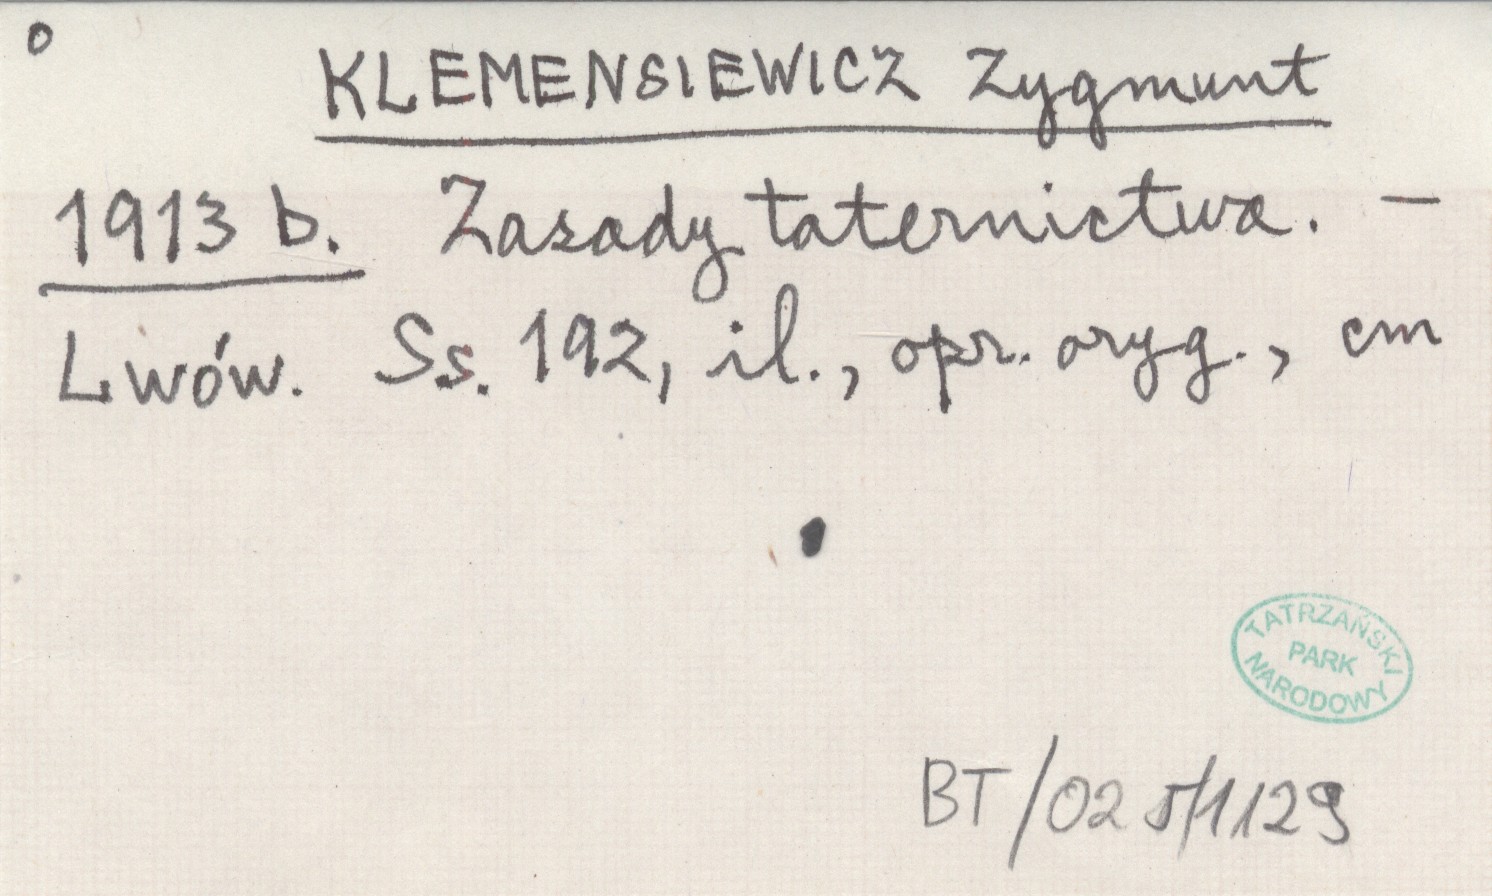 o
KLEMENSIEWICZ Zygmunt
1913 b. Zasady taternictwa. —
Lwów. Ss. 192, il., opr. oryg., cm
TATRZAŃSKI
PARK
NARODOWY
BT/025/1129